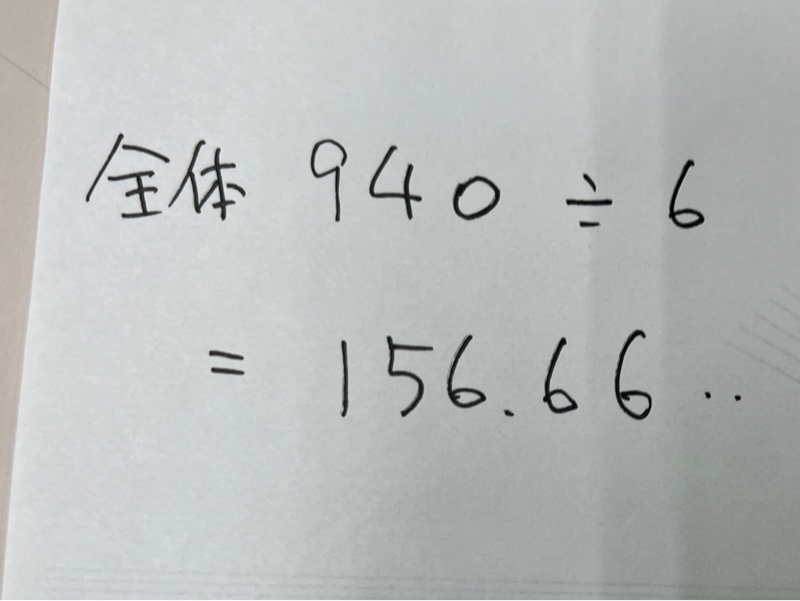 全体 940 ÷ 6
= 156.66..